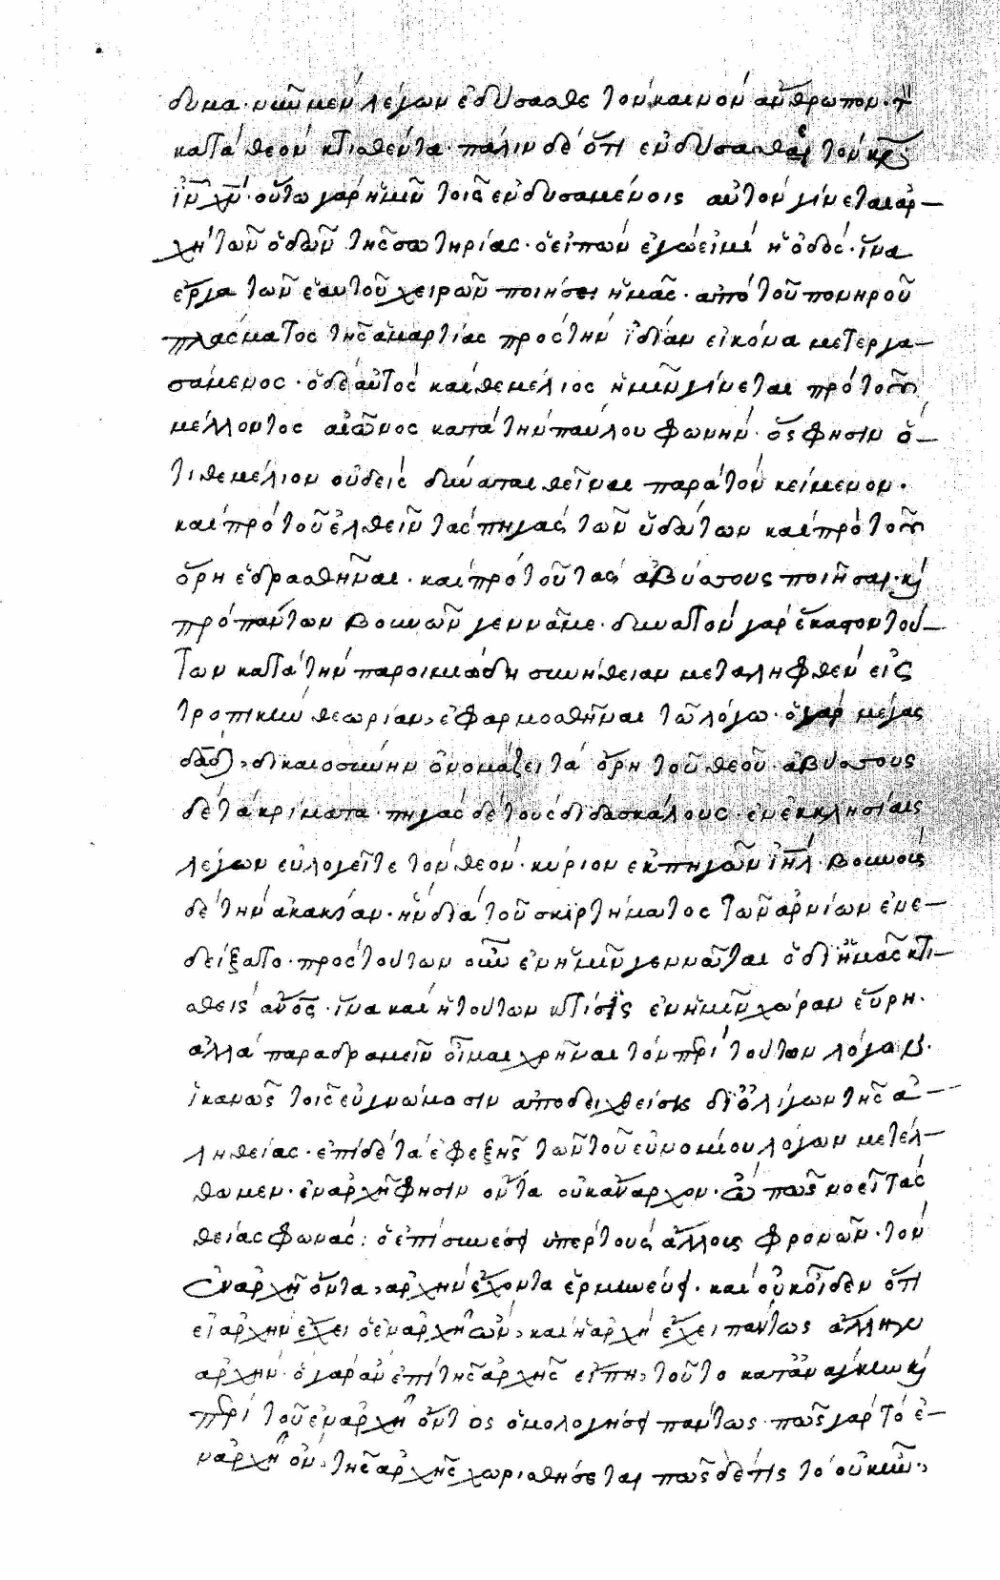 δυμα· νῦν μὲν λέγων ἐνδύσασθε τὸν καινὸν ἄνθρωπον· τὸν
κατὰ θεὸν κτισθέντα· πάλιν δὲ ὅτι ἐνδύσασθαι τὸν κν̄
ιν̄ χν̄· οὕτω γὰρ ἡμῖν τοῖς ἐνδυσαμένοις αὐτὸν γίνεται ἀρ–
χὴ τῶν ὁδῶν τῆς σωτηρίας· ὁ εἰπὼν ἐγώ εἰμι ἡ ὁδός· ἵνα
ἔργα τῶν ἑαυτοῦ χειρῶν ποιήσει ἡμᾶς· ἀπὸ τοῦ πονηροῦ
πλάσματος τῆς ἁμαρτίας πρὸς τὴν ἰδίαν εἰκόνα μετεργα–
σάμενος· ὁ δὲ αὐτὸς καὶ θεμέλιος ἡμῖν γίνεται πρὸ τοῦ
μέλλοντος αἰῶνος κατὰ τὴν παύλου φωνήν· ὅς φησιν ὅ–
τι θεμέλιον οὐδεὶς δύναται θεῖναι παρὰ τὸν κείμενον·
καὶ πρὸ τοῦ ἐλθεῖν τὰς πηγὰς τῶν ὑδάτων καὶ πρὸ τοῦ
ὄρη ἑδρασθῆναι· καὶ πρὸ τοῦ τὰς ἀβύσσους ποιῆσαι· κὶ
πρὸ πάντων βουνῶν γεννᾶ με· δυνατὸν γὰρ ἕκαστον τού–
των κατὰ τὴν παροιμιώδη συνήθειαν μεταληφθὲν εἰς
τροπικὴν θεωρίαν, ἐφαρμοσθῆναι τῶ λόγω· ὁ γὰρ μέγας
δᾱδ, δικαιοσύνην ὀνομάζει τὰ ὄρη τοῦ θεοῦ· ἀβύσσους
δὲ τὰ κρίματα· πηγὰς δὲ τοὺς διδασκάλους· ἐν ἐκκλησίαις
λέγων εὐλογεῖτε τὸν θεὸν· κύριον ἐκ πηγῶν ιηλ̄· βουνοὺς
δὲ τὴν ἀκακίαν· ἣν διὰ τοῦ σκιρτήματος τῶν ἀρνίων ἐνε–
δείξατο· πρὸς τούτων οὖν ἐν ἡμῖν γεννᾶται ὁ δι’ ἡμᾶς κτι–
σθεὶς ανος̄· ἵνα καὶ ἡ τούτων κτίσις ἐν ἡμῖν χώραν εὕρη·
ἀλλὰ παραδραμεῖν οἶμαι χρῆναι τὸν περὶ τούτων λόγον·
ἱκανῶς τοῖς εὐγνώμοσιν ἀποδειχθείσης δι’ ὀλίγων τῆς ἀ–
ληθείας· ἐπὶ δὲ τὰ ἐφεξῆς τῶν τοῦ εὐνομίου λόγων μετέλ–
θωμεν· ἐν ἀρχῆ φησιν ὄντα οὐκ ἄναρχον· ὢ πῶς νοεῖ τὰς
θείας φωνὰς: ὁ ἐπὶ συνέσει ὑπὲρ τοὺς ἄλλους φρονῶν· τὸν
ἐν ἀρχῆ ὄντα, ἀρχὴν ἔχοντα ἑρμηνεύει· καὶ οὐκ οἶδεν ὅτι
εἰ ἀρχὴν ἔχει ὁ ἐν ἀρχῆ ὤν, καὶ ἡ ἀρχὴ ἔχει πάντως ἄλλην
ἀρχήν· ὁ γὰρ ἂν ἐπὶ τῆς ἀρχῆς εἴπη, τοῦτο κατ’ ἀνάγκην κὶ
περὶ τοῦ ἐν ἀρχῆ ὄντος ὁμολογήσει πάντως· πῶς γὰρ τὸ ἐ–
ν ἀρχῆ ὂν, τῆς ἀρχῆς χωρισθήσεται πῶς δέ τις τὸ οὐκ ἦν,